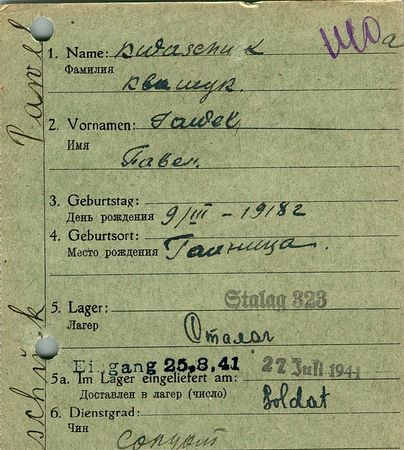 Pawel
1. Name:
Фамилия
Квашук
2. Vornamen: Pawel
Имя
Павел.
3. Geburtstag:
День рождения 9/III - 1918 г
4. Geburtsort:
Место рождения
5. Lager: Stalag 323
Лагерь Сталаг
Eingang 25.8.41 27 Juli 1941
5a. Im Lager eingeliefert am:
Доставлен в лагерь (число)
6. Dienstgrad: Soldat
Чин Солдат